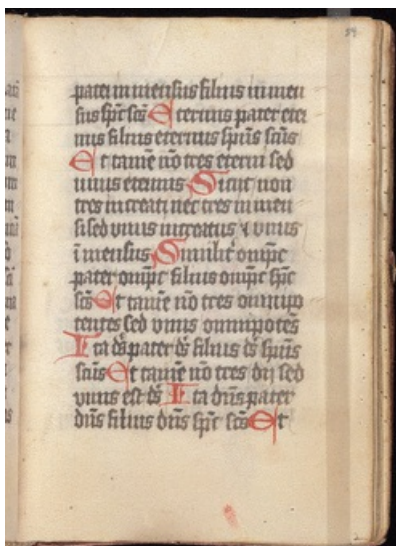 pater in mensus filius in men
sus spc scs Eternus pater eter
nus filius eternus spūs scūs
Et tamē nō tres eterni sed
unus eternus Sicut non
tres increati nec tres in men
si sed unus increatus & unus
ī mensus Similit' omps
pater omps filius omps spc
scs Et tamē nō tres omnipo
tentes sed unus omnipotēs
Ita ds pater ds filius ds spūs
scūs Et tamē nō tres dij sed
unus est ds Ita dns pater
dns filius dns spc scs Et